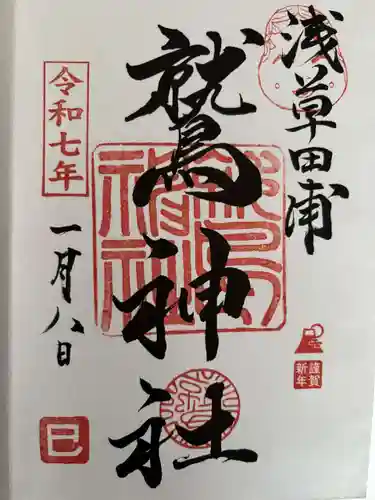 浅草田甫
鷲神社
令和七年
一月八日
謹賀
新年
巳